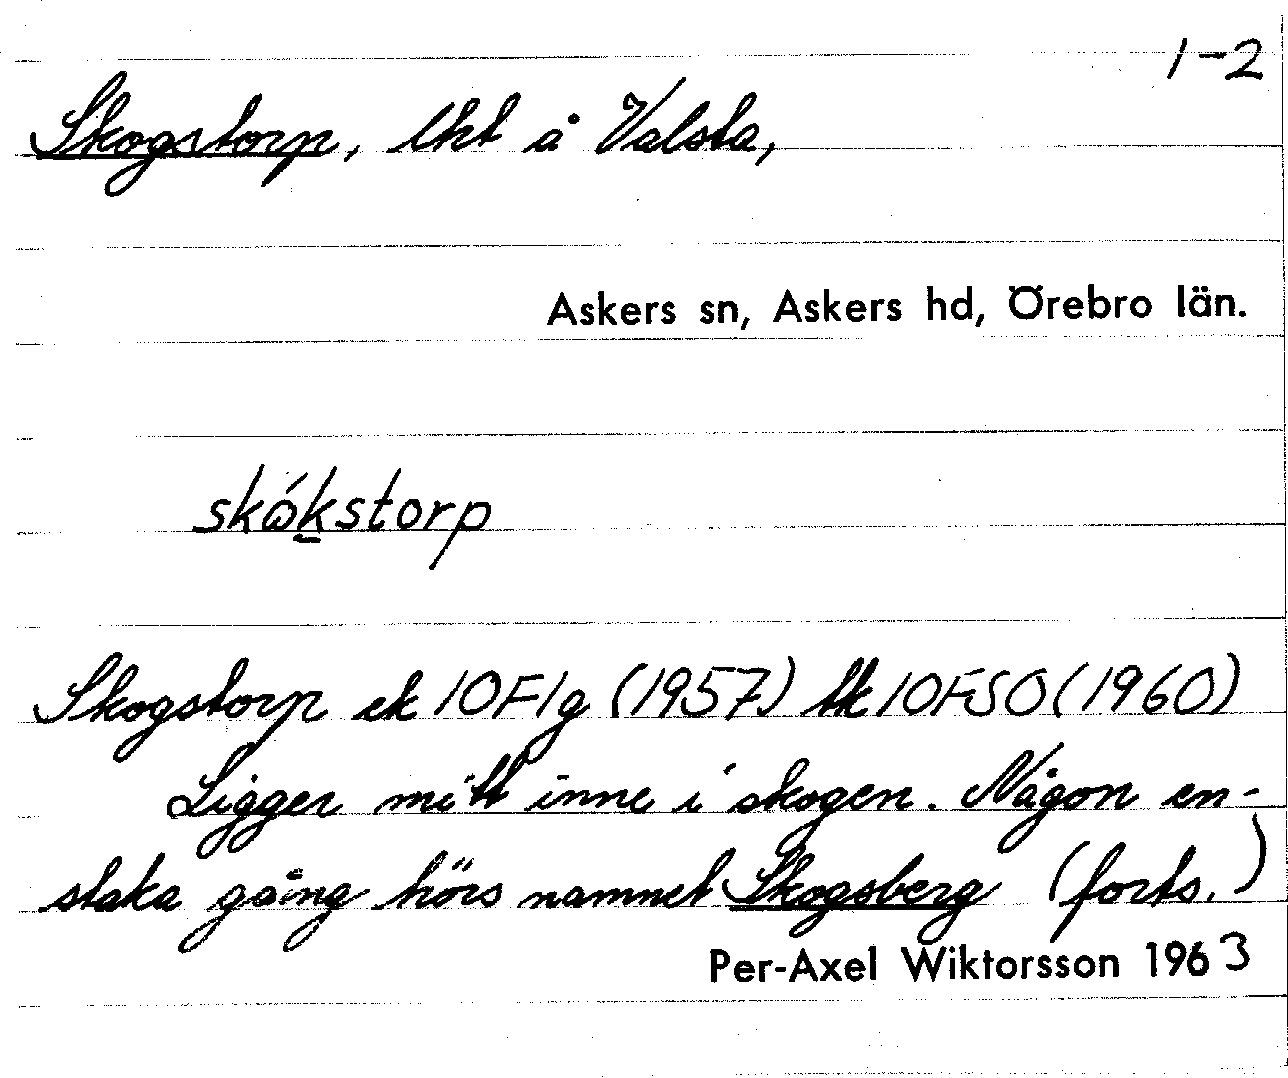 1-2
Skogstorp, lht å Valsta,
Askers sn, Askers hd, Örebro län.
skǿkstorp
Skogstorp ek 10F1g (1957) tk 10FSO (1960)
Ligger mitt inne i skogen. Någon en-
staka gång hörs namnet Skogsberg (forts.)
Per-Axel Wiktorsson 1963